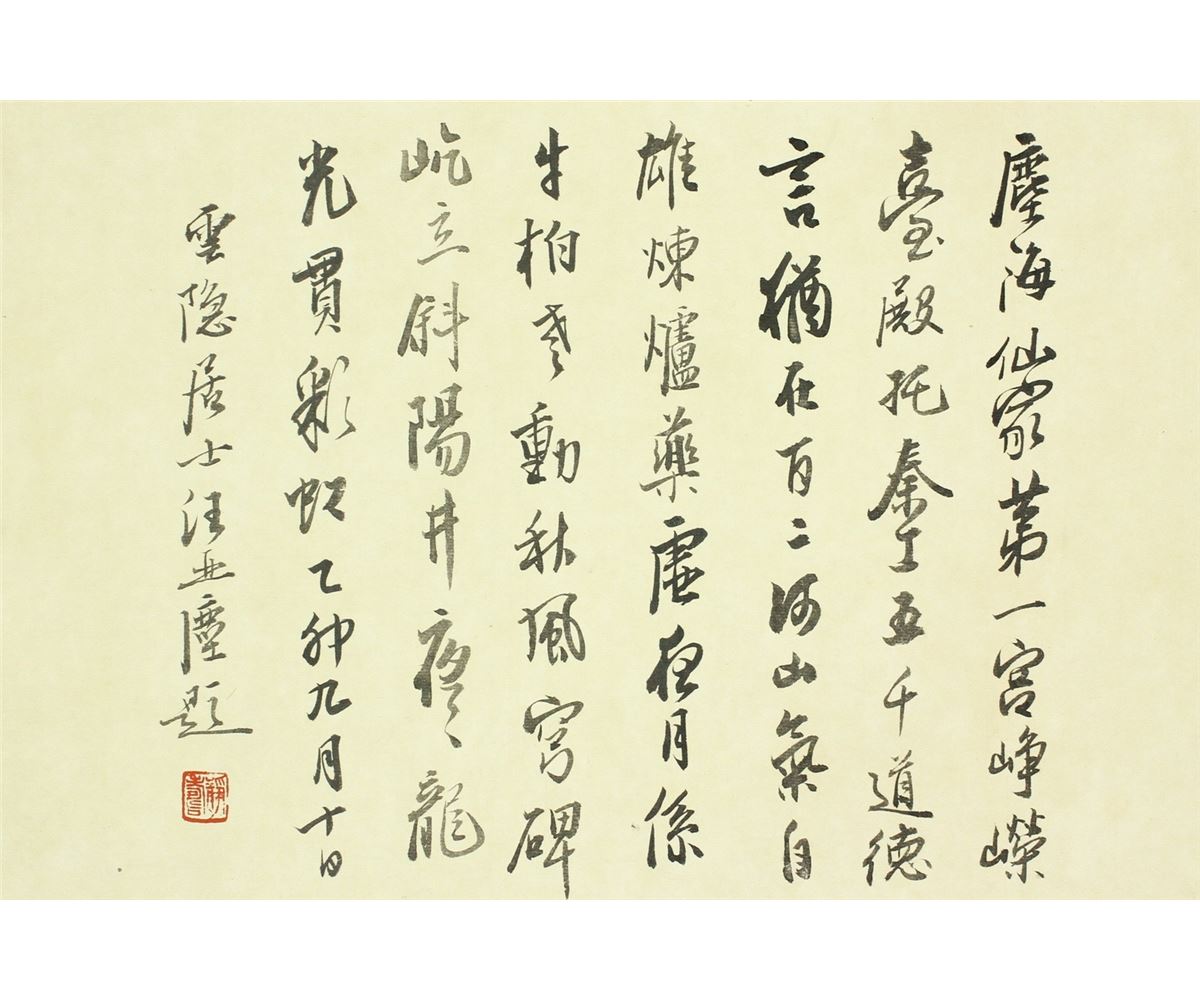 塵海仙家第一宮崢嶸
臺殿托秦工五千道德
言猶在百二河山氣自
雄煉爐藥虛夜月係
牛柏老動秋風穹碑
屹立斜陽井夜〻龍
光貫彩虹乙卯九月十日
雲隐居士汪亞塵題